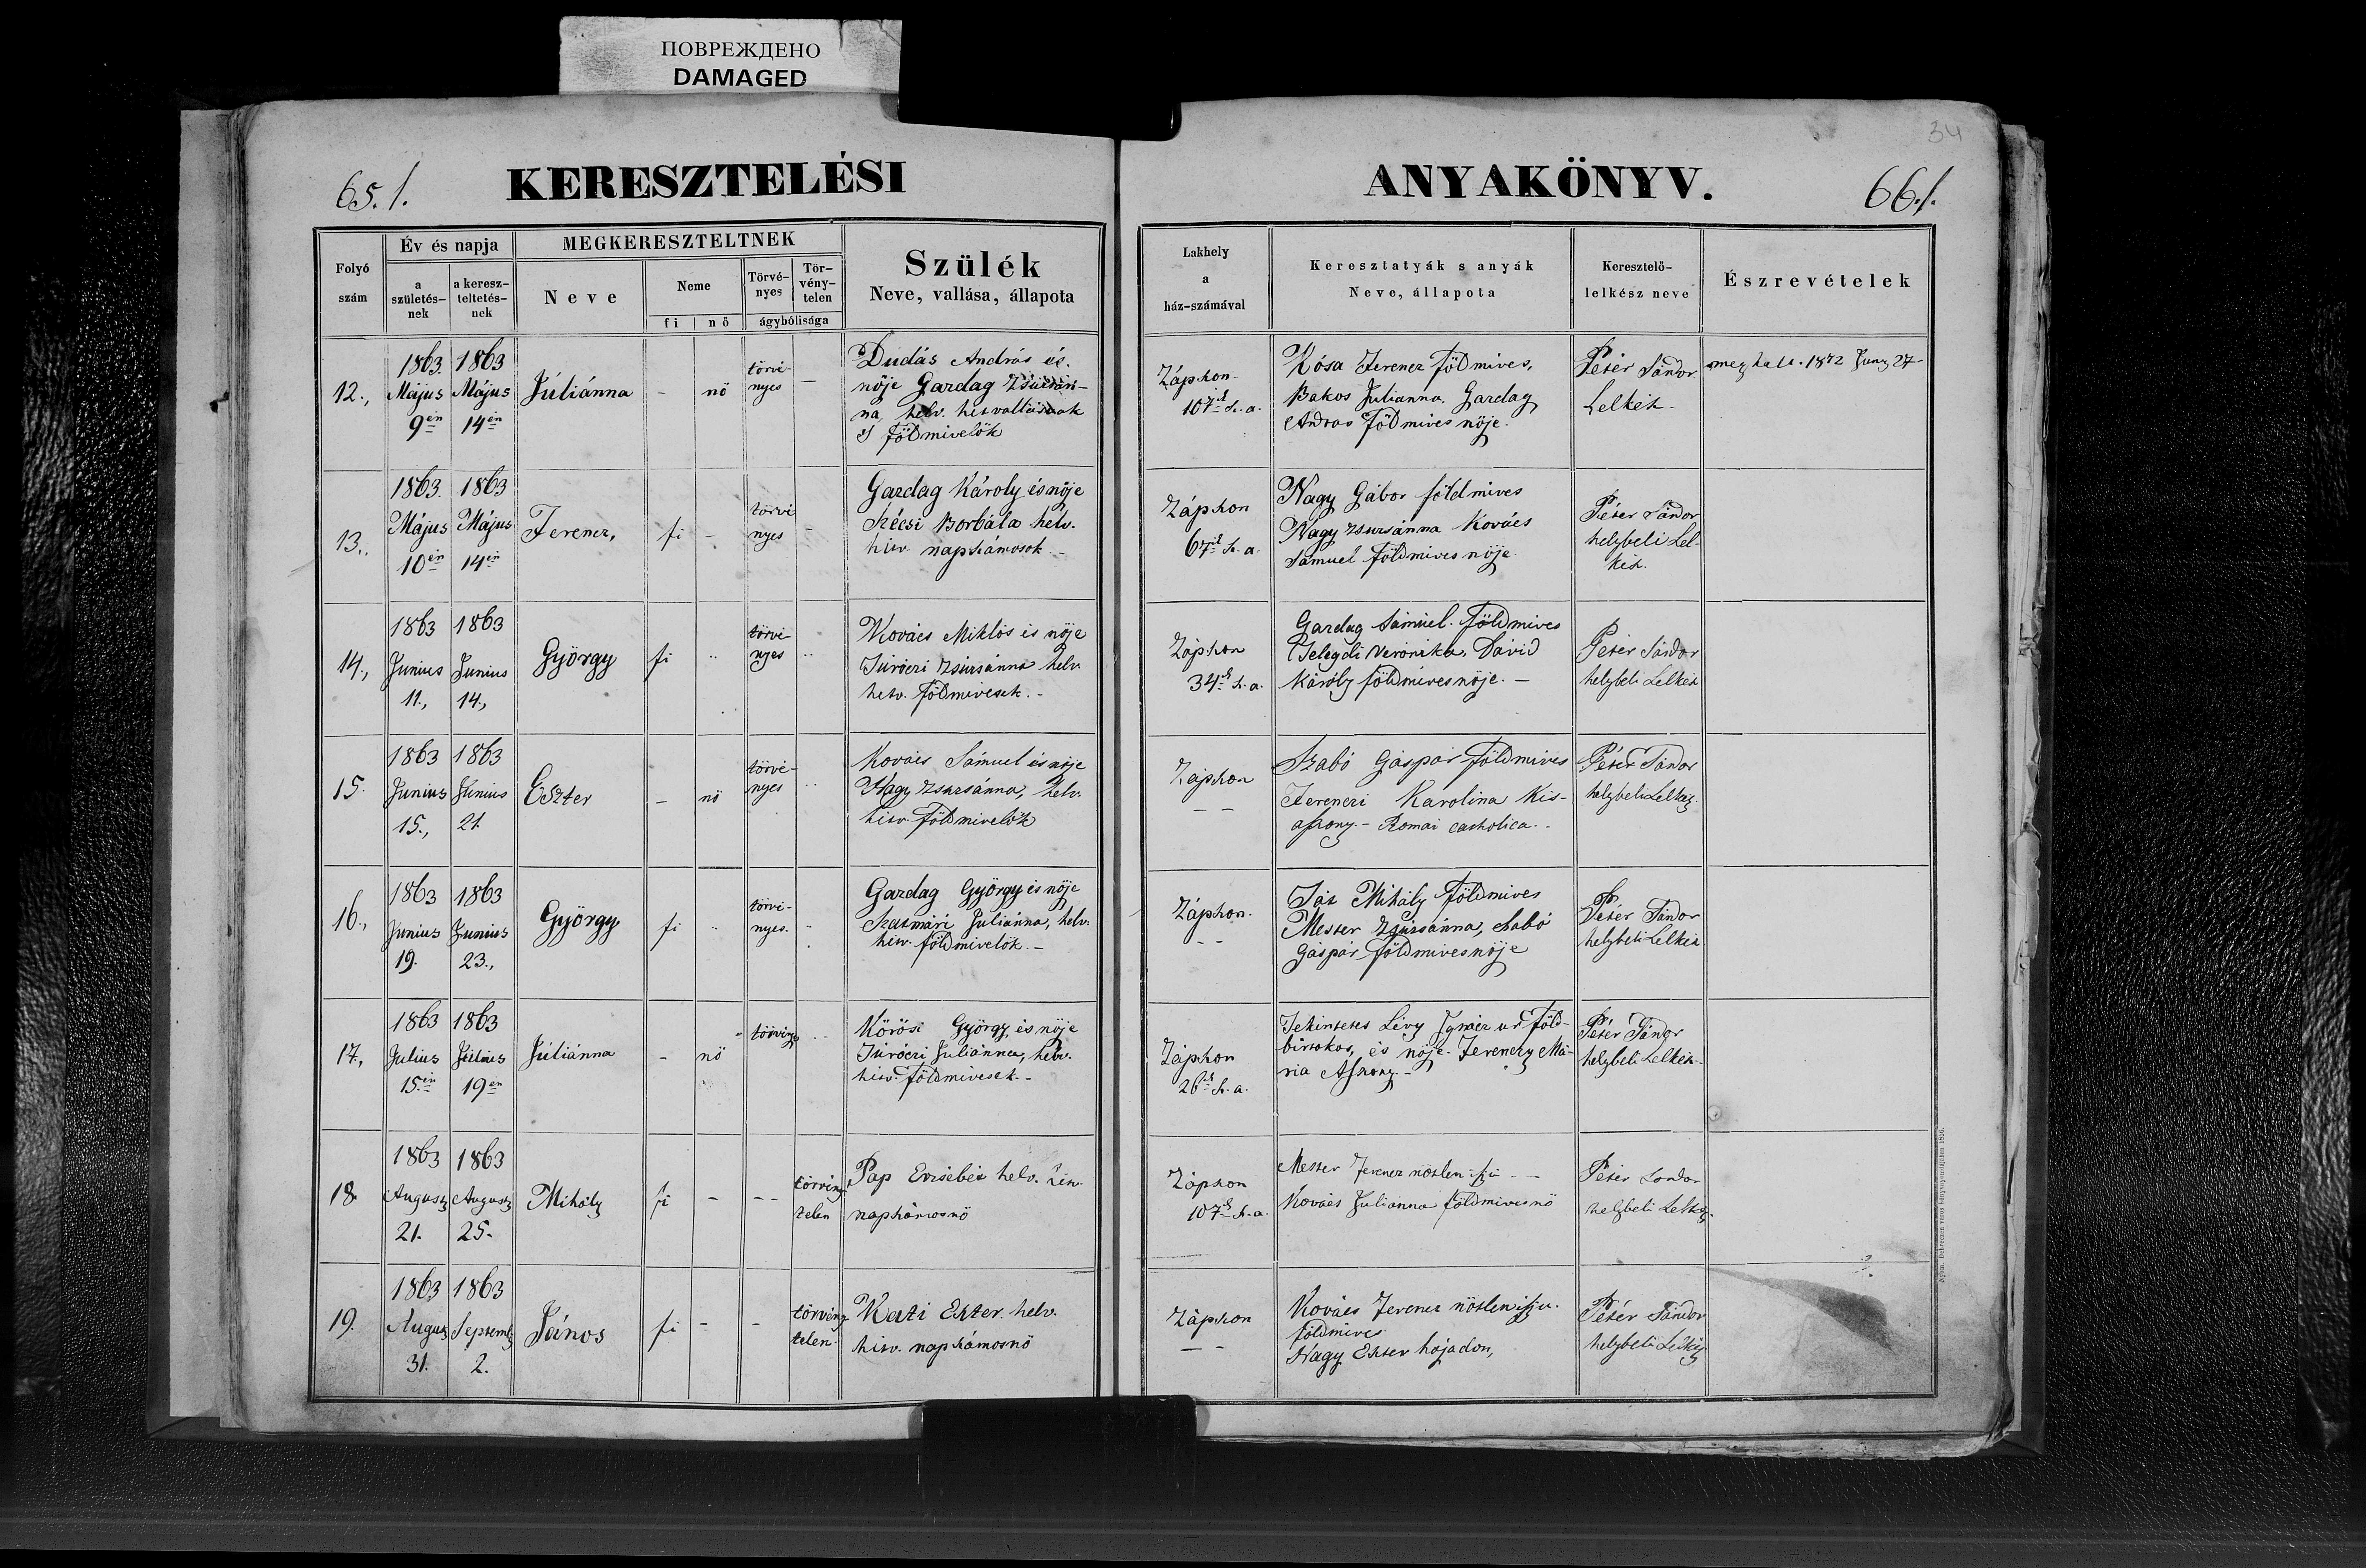 ПОВРЕЖДЕНО
DAMAGED
34
65. 1.
KERESZTELÉSI
ANYAKÖNYV.
66. 1.
Folyó
szám
Év és napja
a
születés-
nek
a keresz-
teltetés-
nek
MEGKERESZTELTNEK
Neve
Neme
fi
nő
Törvé-
nyes
Tör-
vény-
telen
ágybólisága
Szülék
Neve, vallása, állapota
Lakhely
a
ház-számával
Keresztatyák s anyák
Neve, állapota
Keresztelő-
lelkész neve
Észrevételek
12.,
1863.
Május
9én
1863
Május
14én
Júliánna
-
nö
törvé-
nyes
-
Dudás András és.
nöje Gazdag Zsuzsán-
na, helv. hitvallásuak
s földmivelök
Záphon-
107ik h. a.
Kósa Ferencz földmives,
Bakos Julianna, Gazdag
Andras földmives nöje.
Péter Sándor
Lelkész.
meghalt. 1872 Juny 27-
13.,
1863.
Május
10én
1863
Május
14én
Ferencz,
fi
-
törvé
nyes
-
Gazdag Károly és nöje
Szécsi Borbála helv.
hitv. napszámosok. -
Záphon
67ik h. a.
Nagy Gábor földmives
Nagy Zsuzsánna Kovács
Sámuel földmives nöje
Péter Sándor
helybeli Lel-
kész.
14.,
1863
Junius
11.,
1863
Junius
14.,
György
fi
..
törvé-
nyes
..
Kovács Miklós és nöje
Túróczi Zsuzsánna helv.
hitv. földmivesek. -
Záphon
34ik h. a.
Gazdag Sámuel. földmives
Telegdi Veronika, Dávid
Károly földmives nöje. -
Péter Sándor
helybeli Lelkész
15.
1863
Junius
15.,
1863
Junius
21.
Eszter
-
nö
törvé-
nyes
..
Kovács Sámuel és nöje
Nagy Zsuzsánna, helv.
hitv. földmivelök
Záphon
- -
Szabó Gáspár földmives
Ferenczi Karolina Kis-
aszony. - Romai catholica. -
Péter Sándor
helybeli Lelkész.
16.,
1863
Junius
19.
1863
Junius
23.,
György
fi
..
törvé-
nyes.
..
Gazdag György és nöje
Szatmári Juliánna, helv.
hitv. földmivelök. -
Záphon.
- -
Tóz Mihály földmives
Mester Zsuzsánna, Szabó
Gáspár földmives nöje
Péter Sándor
helybeli Lelkész
17,
1863
Julius
15én
1863
Július
19én
Júliánna
-
nö
törvény
..
Körösi György, és nöje
Túróczi Juliánna, helv.
hitv. földmivesek. -
Záphon
26ik h. a.
Tekintetes Lévy Ignácz ur föld-
birtokos, és nöje. Ferenczy Má-
ria Aszony. -
Péter Sándor
helybeli Lelkész.
18.
1863
August
21.
1863
August
25.
Mihály
fi
-
- -
törvény
telen
Pap Erzsébet helv. hitv.
napszámosnö
Záphon
107ik h. a.
Mester Ferencz nöstlen ifju - -
Kovács Julianna földmivesnö
Péter Sandor
helybeli Lelkész.
19.
1863
August
31.
1863
Septemb
2.
János
fi
-
-
törvény
telen.
Kati Eszter. helv.
hitv. napszámosnö
Záphon
- -
Kovács Ferencz nöstlen ifju.
földmives
Nagy Eszter hajadon,
Péter Sándor
helybeli Lelkész
Nyom. Debreczen város könyvnyomdájában 1856.